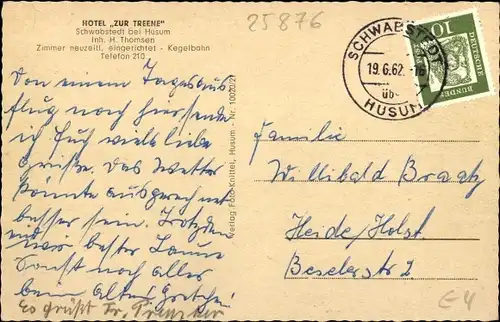 HOTEL „ZUR TREENE"
Schwabstedt bei Husum
Inh. H. Thomsen
Zimmer neuzeitl. eingerichtet - Kegelbahn
Telefon 210
25876
SCHWABSTEDT
19.6.62.-16
üb.
HUSUM
10
DEUTSCHE
BUNDES
Von einem Tagesaus
flug nach hier sende
ich Euch viele liebe
Grüße. Das Wetter
könnte ausgerechnet
besser sein. Trotzdem
sind wir bester Laune
Sonst noch alles
beim Alten! Gretchen
Es grüßt Fr.
Verlag Foto-Knittel, Husum - Nr. 10020/2
Familie
Willibald Braatz
Heide/Holst.
Beselerstr. 2
E4